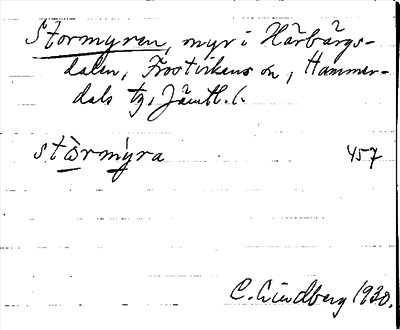 Stormyren, myr i Härbärgs-
dalen, Frostvikens sn, Hammer-
dals tg. Jämtl. l.
stòrmýra 457
C. Lindberg 1930.